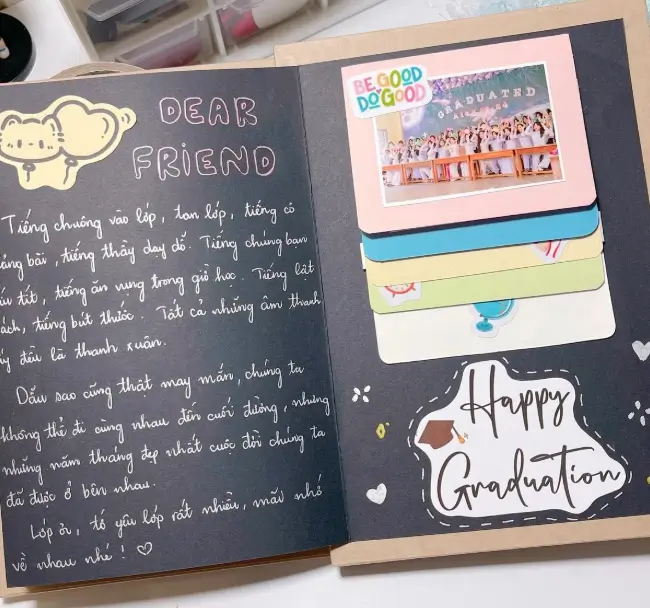 DEAR
FRIEND
Tiếng chuông vào lớp, tan lớp, tiếng cô
bài, tiếng thầy dạy dỗ. Tiếng chúng bạn
tít, tiếng ăn vụng trong giờ học. Tiếng lật
sách, tiếng bút thước. Tất cả những âm thanh
ấy đều là thanh xuân.
Dẫu sao cũng thật may mắn, chúng ta
không thể đi cùng nhau đến cuối đường, nhưng
những năm tháng đẹp nhất cuộc đời chúng ta
đã được ở bên nhau.
Lớp ơi, tớ yêu lớp rất nhiều, mãi nhớ
về nhau nhé!
BE GOOD
DO GOOD
GRADUATED
Happy
Graduation